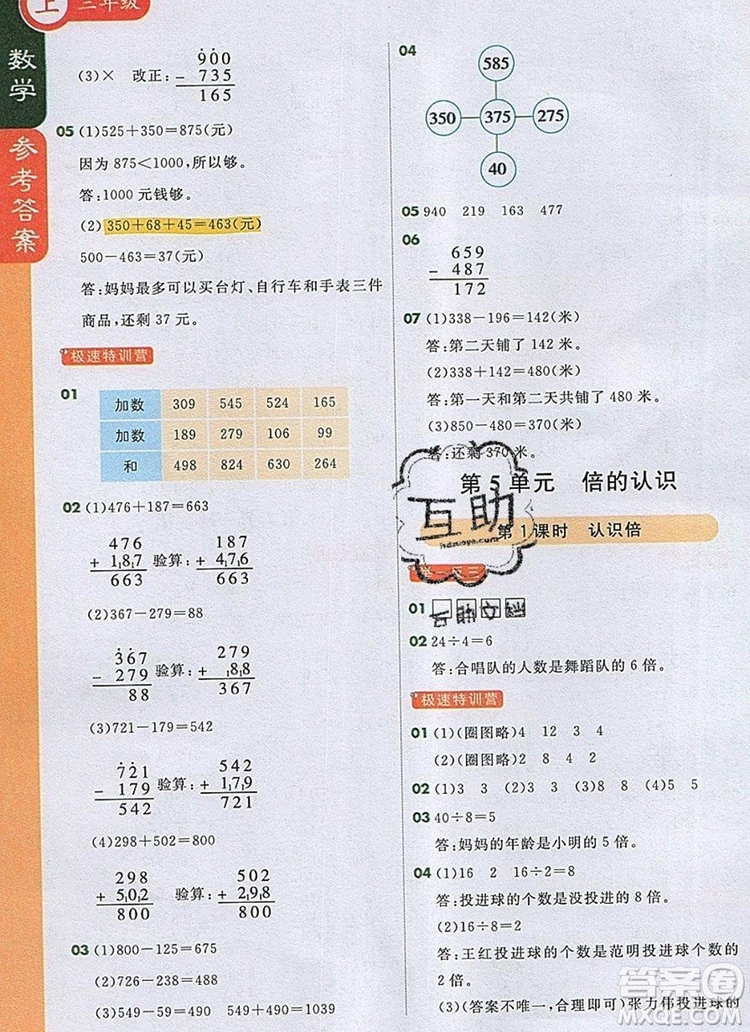 上 三年级
数学
参考答案
900
(3)× 改正: − 735
165
05 (1)525+350=875(元)
因为 875<1000,所以够。
答:1000 元钱够。
(2)350+68+45=463(元)
500−463=37(元)
答:妈妈最多可以买台灯、自行车和手表三件
商品,还剩 37 元。
极速特训营
01
加数 309 545 524 165
加数 189 279 106 99
和 498 824 630 264
02 (1)476+187=663
476 187
+187 验算: +476
663 663
(2)367−279=88
367 279
−279 验算: +88
88 367
(3)721−179=542
721 542
−179 验算: +179
542 721
(4)298+502=800
298 502
+502 验算: +298
800 800
03 (1)800−125=675
(2)726−238=488
(3)549−59=490 549+490=1039
04
585
350 375 275
40
05 940 219 163 477
06
659
−487
172
07 (1)338−196=142(米)
答:第二天铺了 142 米。
(2)338+142=480(米)
答:第一天和第二天共铺了 480 米。
(3)850−480=370(米)
答:还剩 370 米。
第 5 单元 倍的认识
第 1 课时 认识倍
互助
hdzuoye.com
举一反三
01
02 24÷4=6
答:合唱队的人数是舞蹈队的 6 倍。
极速特训营
01 (1)(圈图略)4 12 3 4
(2)(圈图略)2 8 4 2
02 (1)3 3 (2)3 (3)8 8 (4)5 5
03 40÷8=5
答:妈妈的年龄是小明的 5 倍。
04 (1)16 2 16÷2=8
答:投进球的个数是没投进的 8 倍。
(2)16÷8=2
答:王红投进球的个数是范明投进球个数的
2 倍。
(3)(答案不唯一,合理即可)张力伟投进球的
答案圈